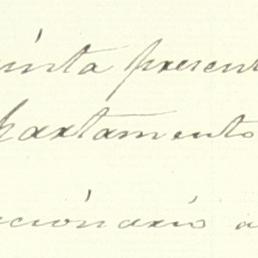 uinta presen
partamento
ccionario a